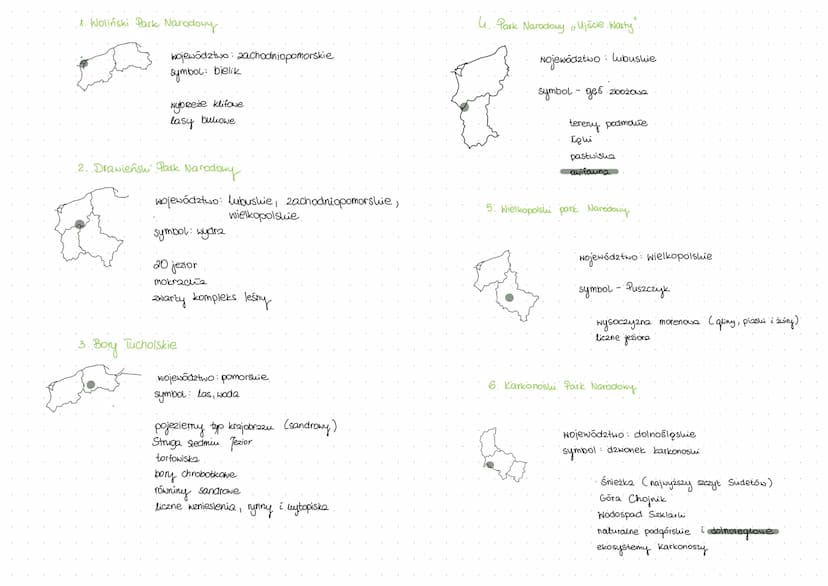 1. Woliński Park Narodowy
województwo: zachodniopomorskie
symbol: bielik
wybrzeże klifowe
lasy bukowe
2. Drawieński Park Narodowy
województwo: lubuskie, zachodniopomorskie,
wielkopolskie
symbol: wydra
20 jezior
mokradła
zwarty kompleks leśny
3. Bory Tucholskie
województwo: pomorskie
symbol: las, woda
pojezierny typ krajobrazu (sandrowy)
Struga Siedmiu Jezior
torfowiska
bory chrobotkowe
równiny sandrowe
liczne wzniesienia, rynny i wytopiska
4. Park Narodowy „Ujście Warty"
województwo: lubuskie
symbol - gęś zbożowa
tereny podmokłe
łąki
pastwiska
awifauna
5. Wielkopolski park Narodowy
województwo: wielkopolskie
symbol - Puszczyk
wysoczyzna morenowa (gliny, piaski i żwiry)
liczne jeziora
6 Karkonoski Park Narodowy
województwo: dolnośląskie
symbol: dzwonek karkonoski
Śnieżka (najwyższy szczyt Sudetów)
Góra Chojnik
Wodospad Szklarki
naturalne podgórskie i dolnoreglowe
ekosystemy Karkonoszy